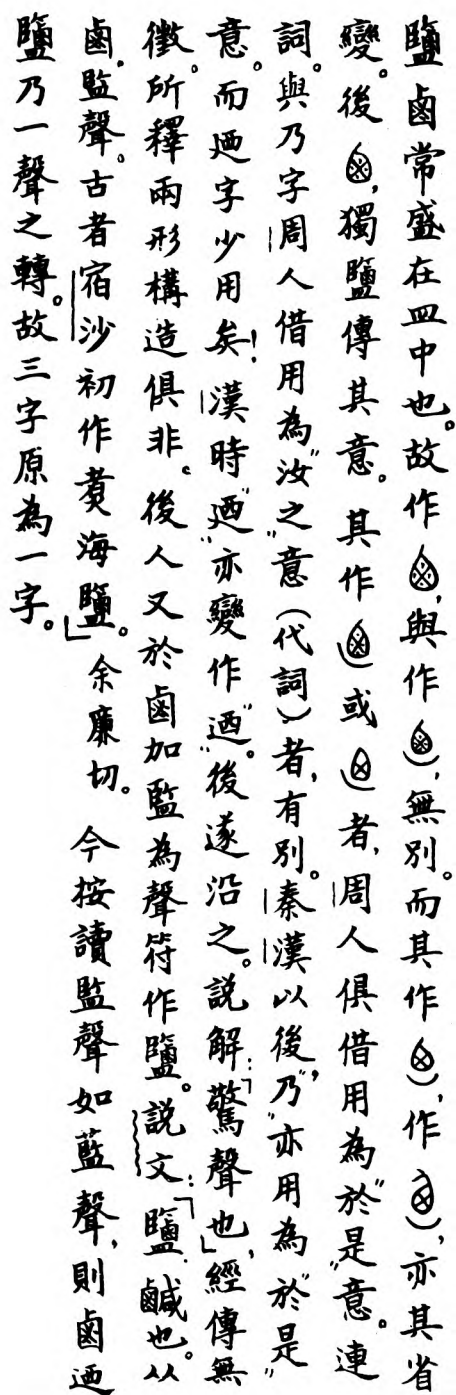 鹽鹵常盛在皿中也。故作，與作，無別。而其作，作，亦其省
變。後，獨鹽傳其意。其作或者，周人俱借用為“於是”意。連
詞。與乃字周人借用為“汝”之意（代詞）者，有別。秦漢以後，“乃”亦用為“於是”
意。而迺字少用矣！漢時“迺”亦變作“迺”。後遂沿之。說解：「驚聲也」，經傳無
徵。所釋兩形構造俱非。後人又於鹵加監為聲符作鹽。說文：「鹽：鹹也。从
鹵，監聲。古者宿沙初作煑海鹽。」余廉切。今按讀監聲如藍聲，則鹵迺
鹽乃一聲之轉。故三字原為一字。